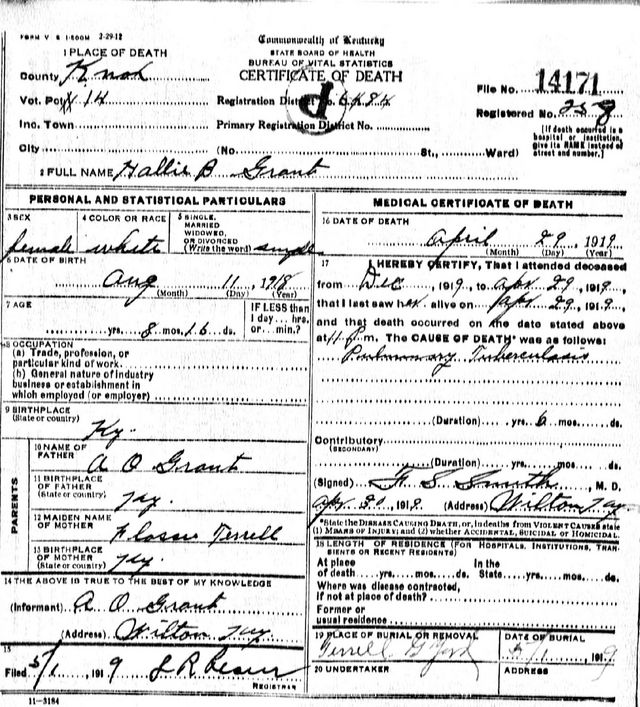 FORM V S 1-500M 2-29-12
Commonwealth of Kentucky
STATE BOARD OF HEALTH
BUREAU OF VITAL STATISTICS
CERTIFICATE OF DEATH
1 PLACE OF DEATH
County Knox
Vot. Pct. 14
Inc. Town
City (No. St., Ward)
Registration District No.
Primary Registration District No.
File No. 14171
Registered No.
[If death occurred in a hospital or institution, give its NAME instead of street and number.]
2 FULL NAME Hallie B Grant
PERSONAL AND STATISTICAL PARTICULARS
3 SEX female
4 COLOR OR RACE white
5 SINGLE, MARRIED WIDOWED, OR DIVORCED (Write the word) single
6 DATE OF BIRTH
Aug 11, 1918
(Month) (Day) (Year)
7 AGE
yrs. 8 mos. 16 ds.
IF LESS than 1 day... hrs. or... min.?
8 OCCUPATION
(a) Trade, profession, or particular kind of work.
(b) General nature of industry business or establishment in which employed (or employer)
9 BIRTHPLACE
(State or country) Ky.
PARENTS
10 NAME OF FATHER A O Grant
11 BIRTHPLACE OF FATHER (State or country) Ky.
12 MAIDEN NAME OF MOTHER Flossie Terrell
13 BIRTHPLACE OF MOTHER (State or country) Ky.
14 THE ABOVE IS TRUE TO THE BEST OF MY KNOWLEDGE
(Informant) A O Grant
(Address) Wilton Ky
15
Filed 5/1, 1919
REGISTRAR
11-3184
MEDICAL CERTIFICATE OF DEATH
16 DATE OF DEATH
April 29, 1919
(Month) (Day) (Year)
17 I HEREBY CERTIFY, That I attended deceased
from Dec, 1919, to Apr 29, 1919,
that I last saw her alive on Apr 29, 1919,
and that death occurred on the date stated above
at 11 P.m. The CAUSE OF DEATH* was as follows:
Pulmonary Tuberculasis
(Duration) yrs. 6 mos. ds.
Contributory
(SECONDARY)
(Duration) yrs. mos. ds.
(Signed) F S Smith, M. D.
Apr 30, 1919 (Address) Wilton Ky
*State the DISEASE CAUSING DEATH, or, in deaths from VIOLENT CAUSES state
(1) MEANS OF INJURY; and (2) whether ACCIDENTAL, SUICIDAL or HOMICIDAL.
18 LENGTH OF RESIDENCE (FOR HOSPITALS, INSTITUTIONS, TRANSIENTS OR RECENT RESIDENTS)
At place of death yrs. mos. ds. In the State yrs. mos. ds.
Where was disease contracted,
If not at place of death?
Former or
usual residence
19 PLACE OF BURIAL OR REMOVAL
Terrell G Yard
DATE OF BURIAL
5/1, 1919
20 UNDERTAKER
ADDRESS